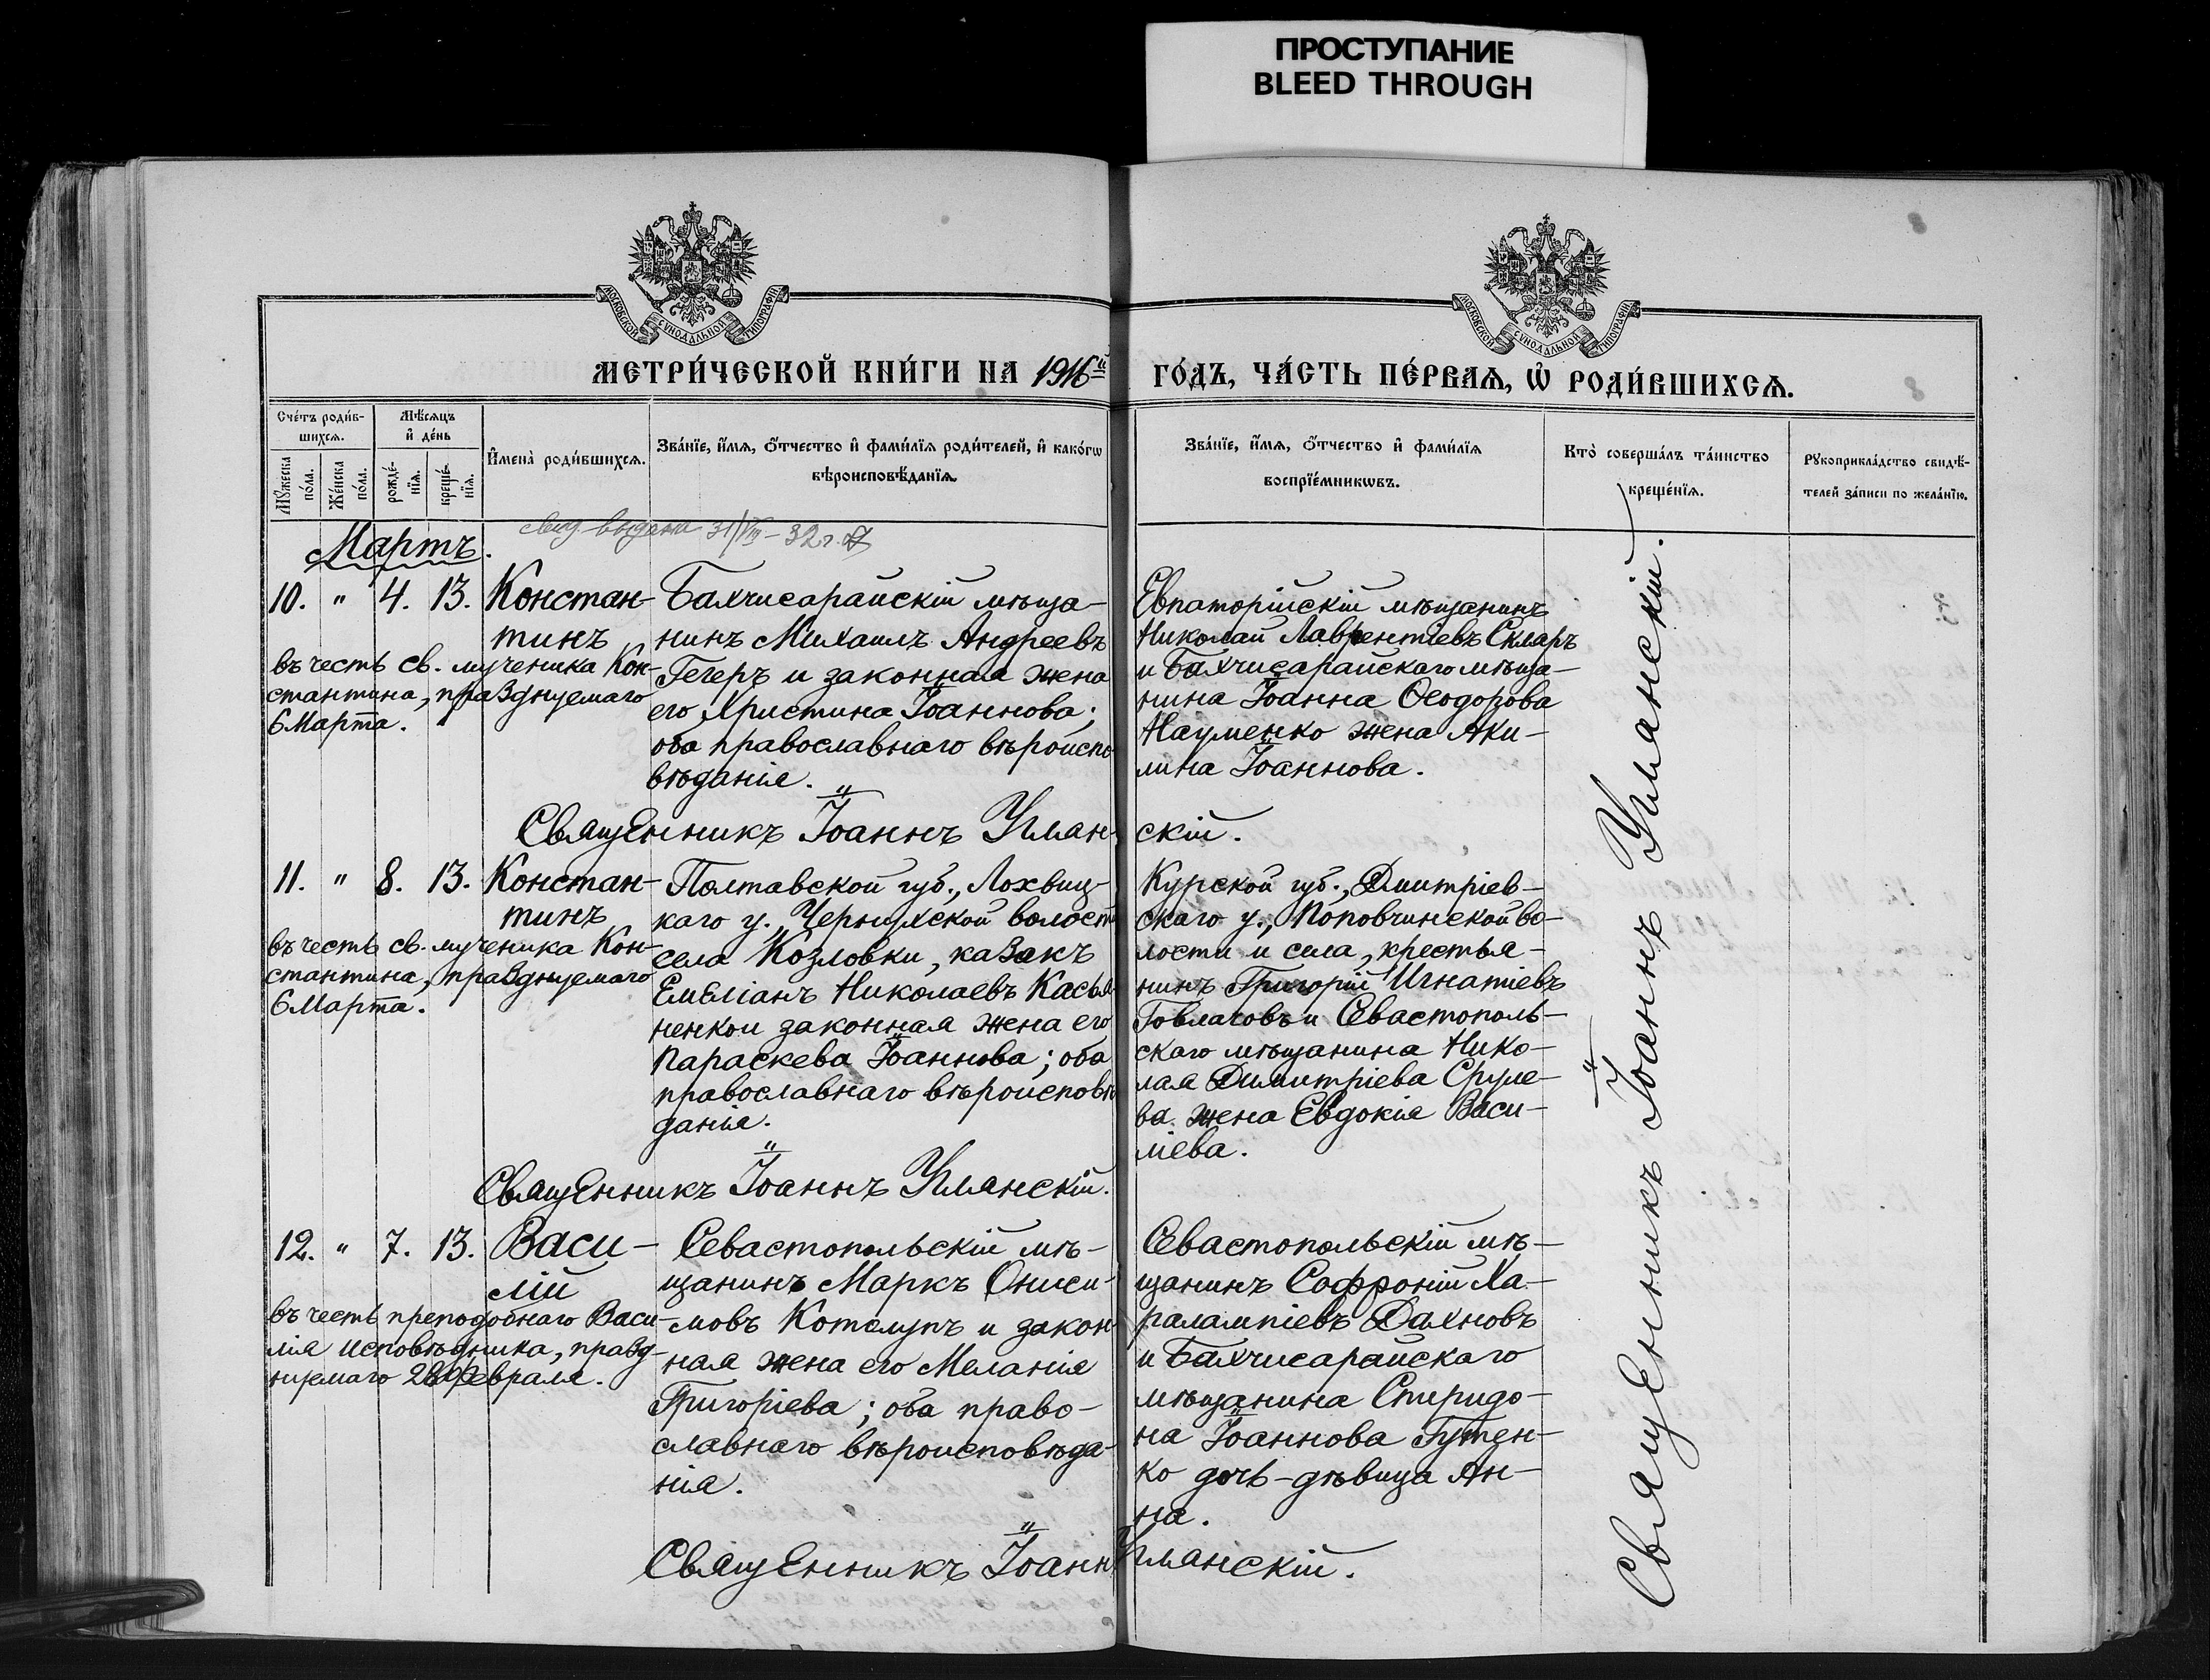 ПРОСТУПАНИЕ
BLEED THROUGH
МОСКОВСКОЙ СѴНОДАЛЬНОЙ ТИПОГРАФІИ
МОСКОВСКОЙ СѴНОДАЛЬНОЙ ТИПОГРАФІИ
МЕТРИ́ЧЕСКОЙ КНИ́ГИ НА 1916й
ГО́ДЪ, ЧА́СТЬ ПЕ́РВАѦ, Ѡ҆ РОДИ́ВШИХСѦ.
Сче́тъ роди́в-
шихсѧ.
Мꙋ́жеска по́ла.
Же́нска по́ла.
Мѣ́сѧцъ
и҆ де́нь
рожде́-
нїѧ.
креще́-
нїѧ.
И҆мена̀ роди́вшихсѧ.
Зва́нїе, и҆́мѧ, ѻ҆́тчество и҆ фами́лїѧ роди́телей, и҆ како́гѡ
вѣроисповѣ́данїѧ
Зва́нїе, и҆́мѧ, ѻ҆́тчество и҆ фами́лїѧ
воспрїе́мникѡвъ.
Кто̀ соверша́лъ та́инство
креще́нїѧ.
Рꙋкоприкла́дство свидѣ́-
телей за́писи по жела́нїю.
Мартъ.
свид выдана 31/VIII – 32 г.
10. " 4. 13. Констан-
тинъ
въ честь св. мученика Кон-
стантина, празднуемаго
6 Марта.
Бахчисарайскій мѣща-
нинъ Михаилъ Андреевъ
Гегеръ и законная жена
его Христина Іоаннова;
оба православнаго вѣроиспо
вѣданія.
Евпаторійскій мѣщанинъ
Николай Лаврентіевъ Скляръ
и Бахчисарайскаго мѣща-
нина Іоанна Ѳеодорова
Науменко жена Аки-
лина Іоаннова.
Священникъ Іоаннъ Уман-скій.
11. " 8. 13. Констан-
тинъ
въ честь св. мученика Кон-
стантина, празднуемаго
6 Марта.
Полтавской губ., Лохвиц-
каго у., Чернухской волост
села Козловки, казакъ
Емеліанъ Николаевъ Касья
ненко и законная жена его
Параскева Іоаннова; оба
православнаго вѣроисповѣ
данія.
Курской губ., Дмитріев-
скаго у., Поповчинской во-
лости и села, крестья-
нинъ Григорій Игнатіевъ
Говлаговъ и Севастополь-
скаго мѣщанина Нико-
лая Димитріева Сруле-
ва жена Евдокія Васи-
ліева.
Священникъ Іоаннъ Уманскій.
12. " 7. 13. Васи-
лій
въ честь преподобнаго Васи-
лія исповѣдника, празд-
нуемаго 28 Февраля.
Севастопольскій мѣ-
щанинъ Маркъ Ониси-
мовъ Котелупъ и закон
ная жена его Меланія
Григоріева; оба право-
славнаго вѣроисповѣда-
нія.
Севастопольскій мѣ-
щанинъ Софроній Ха-
ралампіевъ Дахновъ
и Бахчисарайскаго
мѣщанина Спиридо-
на Іоаннова Гутен-
ко дочь-дѣвица Ан-
на.
Священникъ Іоаннъ Уманскій.
Священникъ Іоаннъ Уманскій.